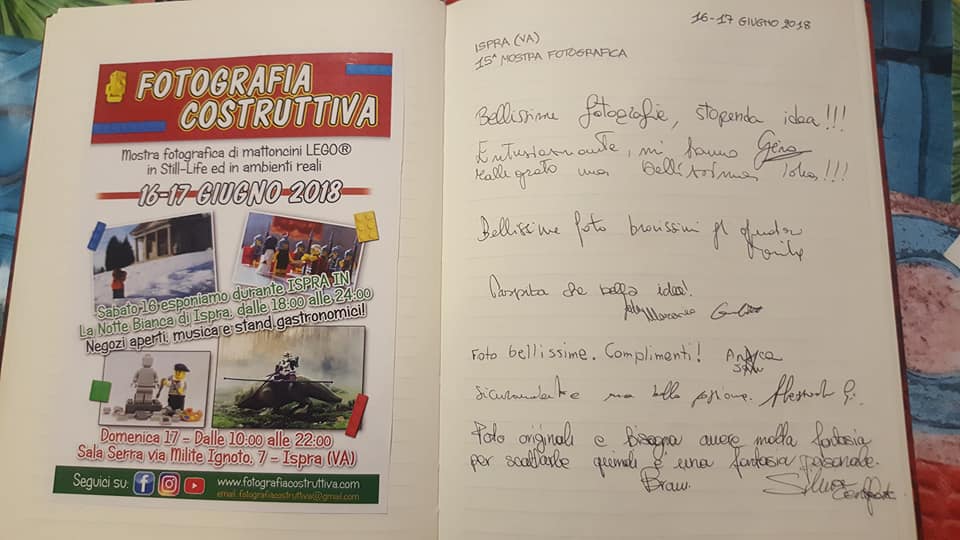 FOTOGRAFIA
COSTRUTTIVA
Mostra fotografica di mattoncini LEGO®
in Still-Life ed in ambienti reali
16-17 GIUGNO 2018
Sabato 16 esponiamo durante ISPRA IN
La Notte Bianca di Ispra, dalle 18:00 alle 24:00
Negozi aperti, musica e stand gastronomici!
Domenica 17 - Dalle 10:00 alle 22:00
Sala Serra via Milite Ignoto, 7 - Ispra (VA)
Seguici su:
www.fotografiacostruttiva.com
email: fotografiacostruttiva@gmail.com
16-17 GIUGNO 2018
ISPRA (VA)
15ª MOSTRA FOTOGRAFICA
Bellissime fotografie, stupenda idea!!!
Entusiasmante, mi hanno
rallegrato una bellissima!!!
Bellissime foto bravissimi
che bella idea!
Foto bellissime. Complimenti!
Sicuramente una bella
Foto originali e bisogna avere molta fantasia
per scattarle quindi è una fantasia personale.
Bravi.